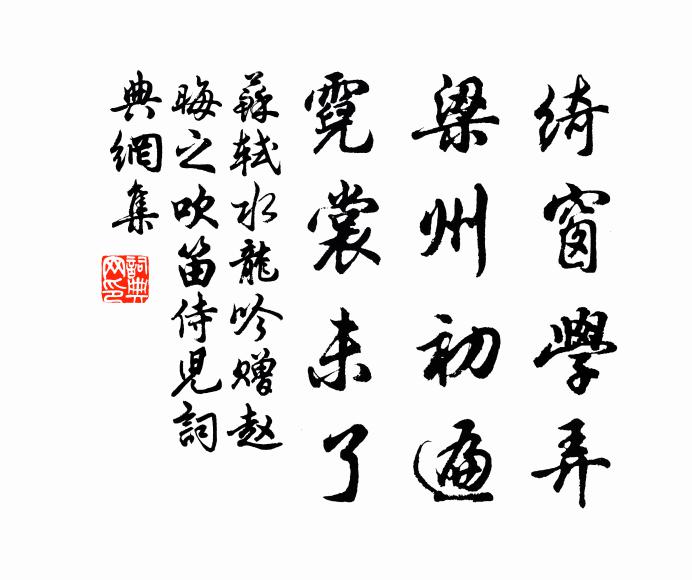 綺窗學弄
梁州初遍
霓裳未了
蘇軾水龍吟贈赵
晦之吹笛侍児詞
典網集
詞典
网印